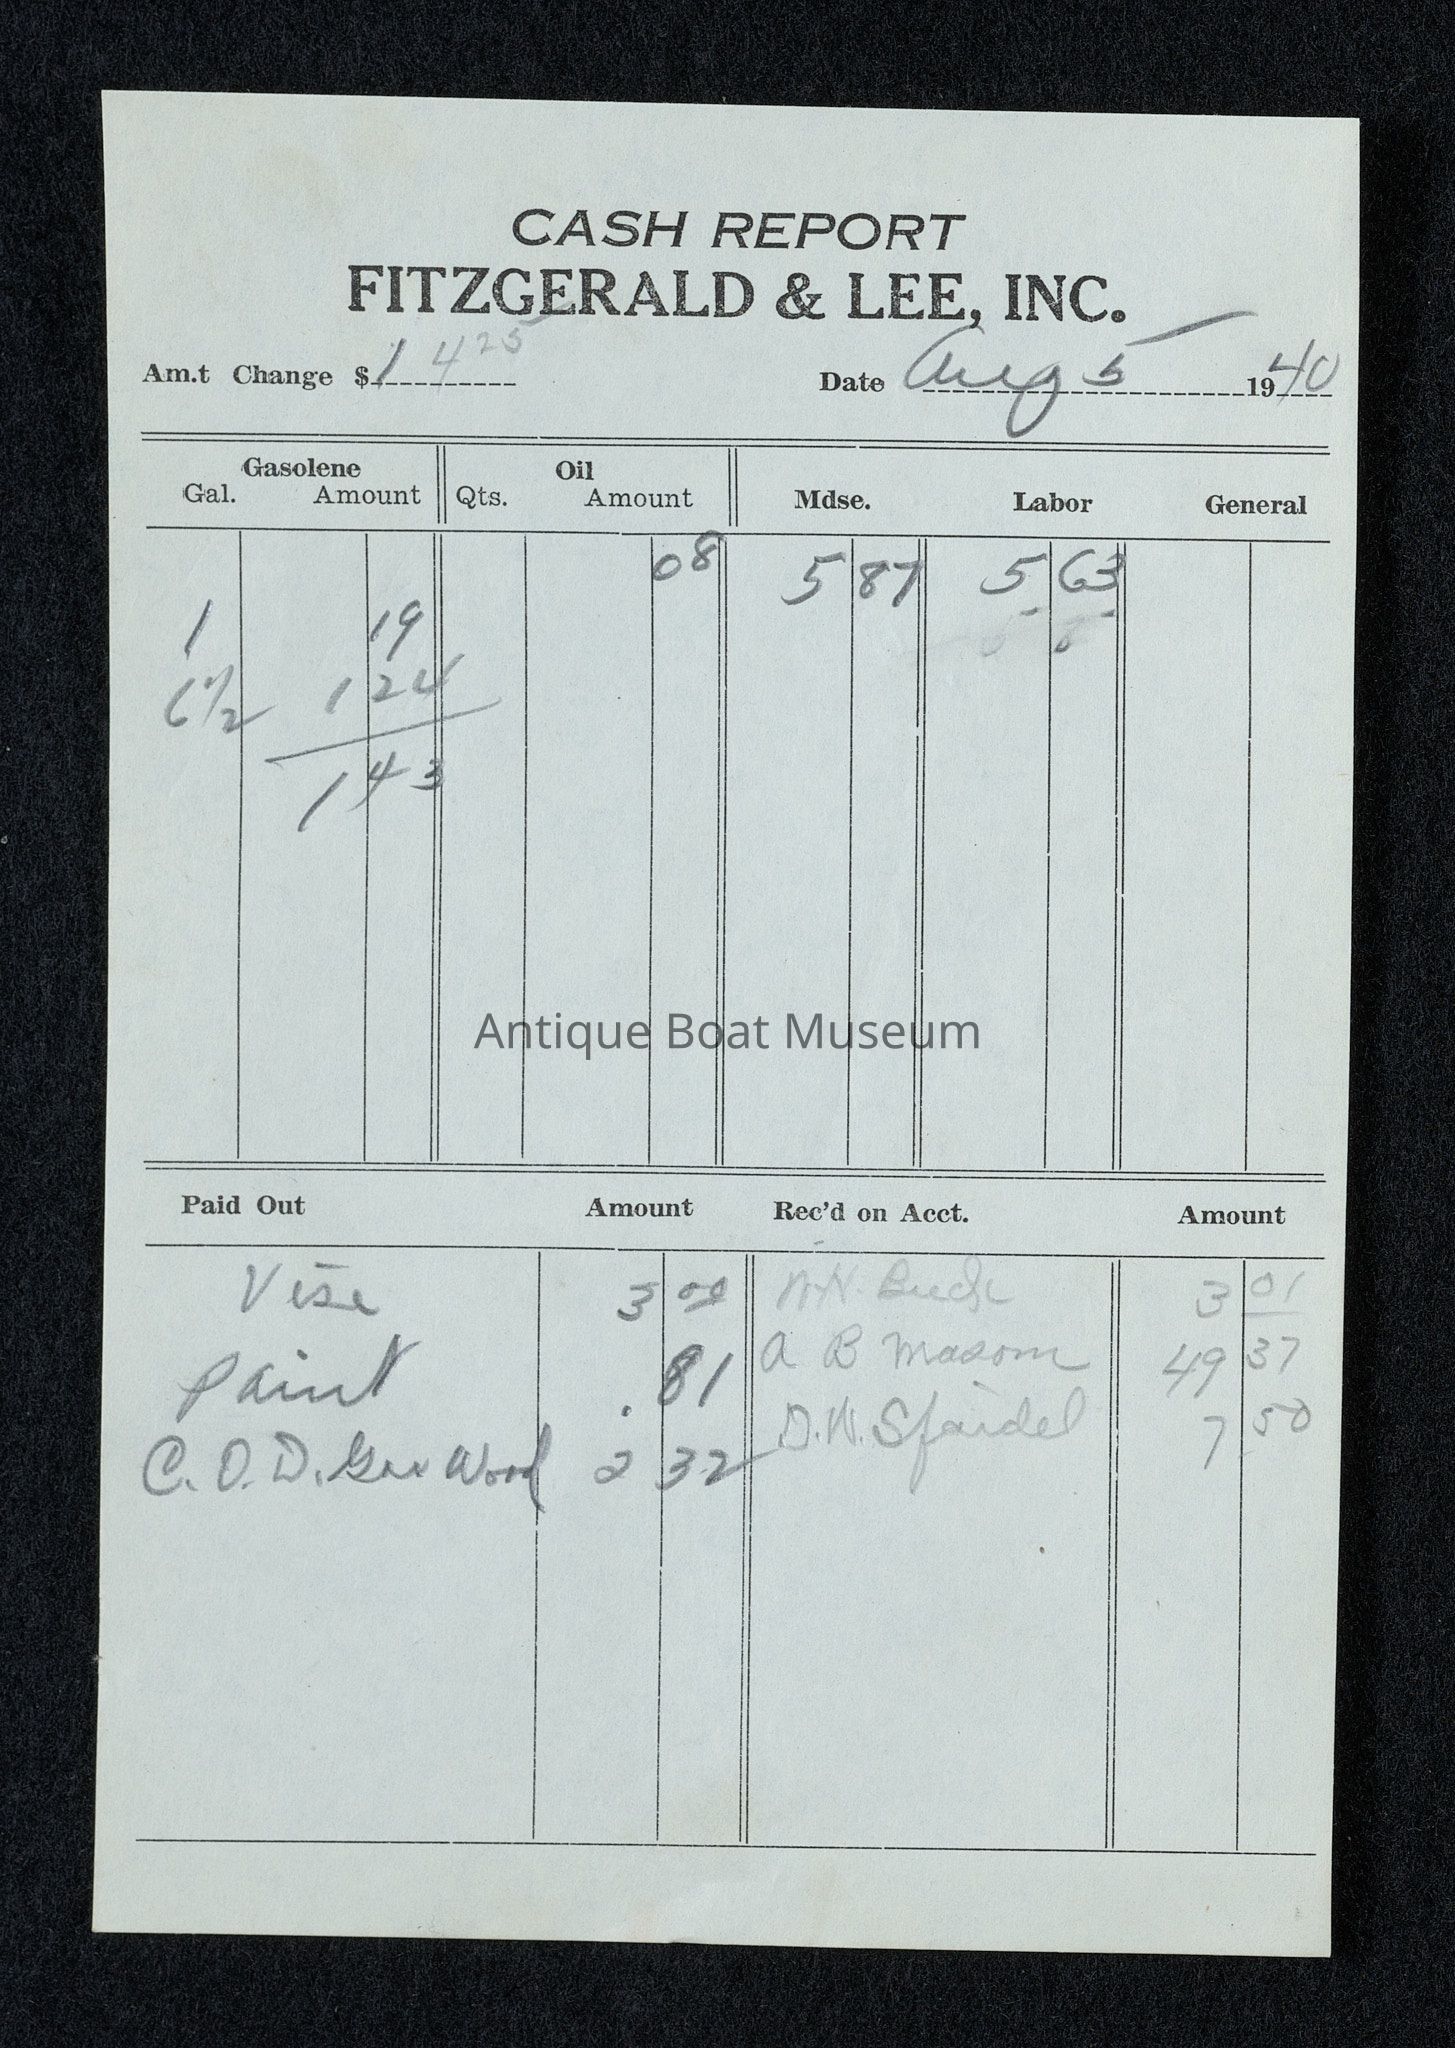 CASH REPORT
FITZGERALD & LEE, INC.
Am.t Change $ 14 25 Date Aug 5 1940
Gasolene Oil
Gal. Amount Qts. Amount Mdse. Labor General
08 5 87 5 63
1 19
6 1/2 1 24
1 43
Antique Boat Museum
Paid Out Amount Rec'd on Acct. Amount
Vise 3 00 W.H. 3 01
Paint .81 A B Masom 49 37
C.O.D. Gar Wood 2 32 D.W. 7 50